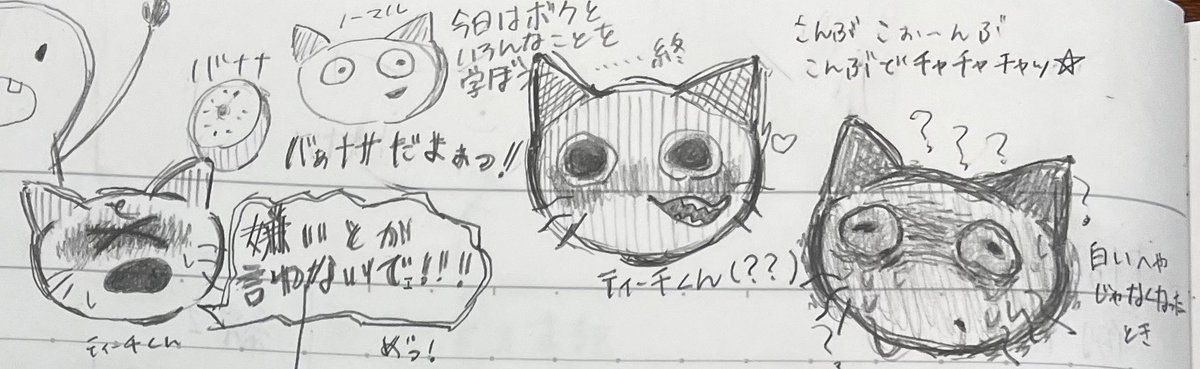 ノーマル
今日はボクと
いろんなことを
学ぼう
……終
こんぶ こぉーんぶ
こんぶでチャチャチャッ☆
バナナ
バぁナナだよぉっ!!
???
嫌いとか
言わないでェ!!!
ティーチくん(??)
白いへや
じゃなくなった
とき
ティーチくん
めっ!